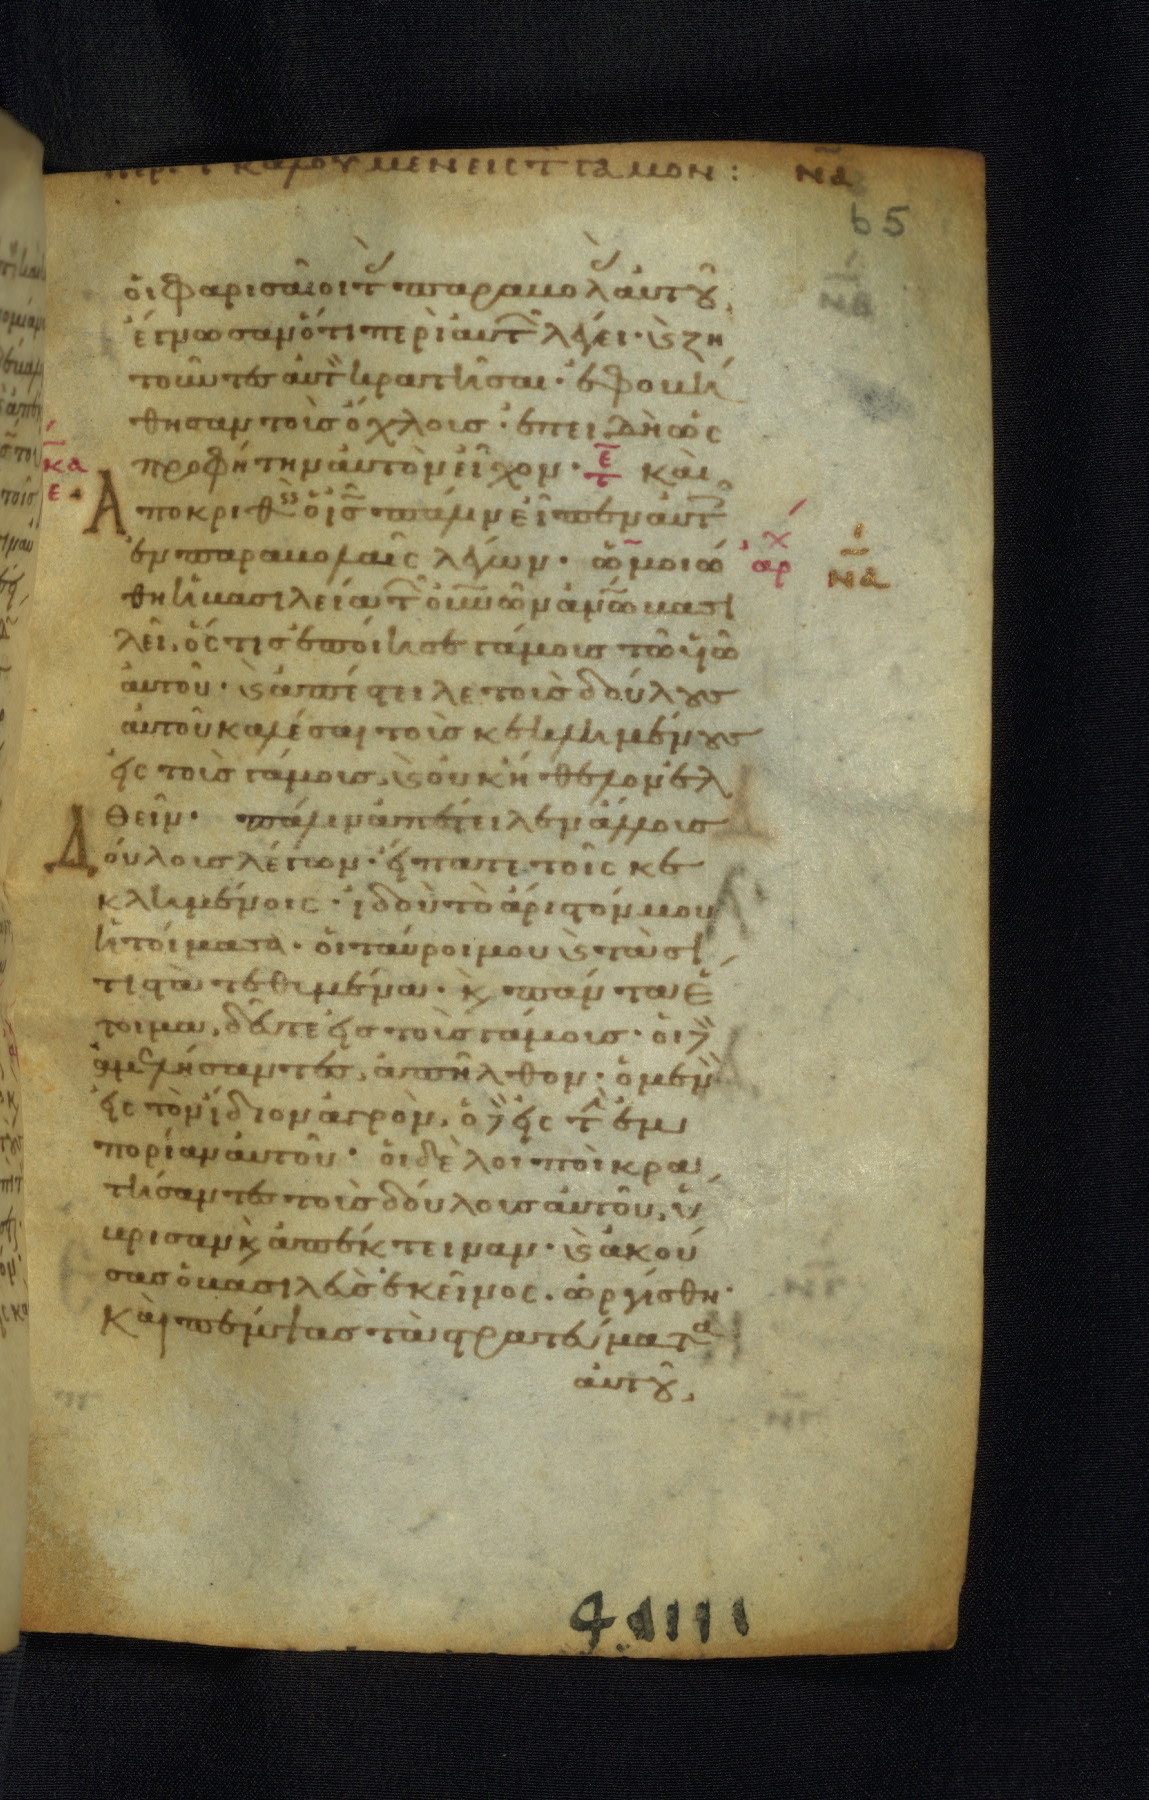 καλουμεν εις τ γαμον : να
65
ὁι φαρισαῖοι τ̀ παραβολ̀ ἀυτȣ͂,
ἔγνωσαν ὅτι περὶ ἀυτ͂ λέγει· ϗ ζη
τοῦντες ἀυτ̀ κρατῆσαι· ἐφοβή
θησαν τοὺς ὄχλους· ἐπειδὴ ὡς
προφήτην ἀυτὸν εἶχον· τε καὶ
κα
ε
Αποκριθεὶς ὁ ις̅ πάλιν εἶπεν ἀυτ
ἐν παραβολαῖς λέγων· ὡμοιώ
αρχ
να
θη ἡ βασιλεία τ͂ ουνων ανω βασι
λεῖ, ὅστις ἐποίησε γάμους τῶ υἱῶ
ἀυτοῦ· ϗ ἀπέστειλε τοὺς δούλȣς
ἀυτοῦ καλέσαι τοὺς κεκλημένȣς
εἰς τοὺς γάμους, ϗ οὐκ ἤθελον ἐλ
θεῖν· πάλιν ἀπέστειλεν ἄλλους
Δούλους λέγων· εἴπατε τοῖς κε
κλημένοις· ἰδοὺ τὸ ἄριστόν μου
ἡτοίμασα· ὁι ταῦροι μου ϗ τὰ σι
τιστὰ τεθυμένα· ϗ πάντα ἕ
τοιμα, δεῦτε εἰς τοὺς γάμους· ὁι δὲ
ἀμελήσαντες, ἀπῆλθον· ὁ μὲν
εἰς τὸν ἴδιον ἀγρὸν, ὁ δὲ εἰς τ̀ ἐμ
πορίαν ἀυτοῦ· ὁι δὲ λοιποὶ κρα
τήσαντες τοὺς δούλους ἀυτοῦ, ὕ
βρισαν ϗ ἀπέκτειναν· ϗ ἀκού
σας ὁ βασιλεὺς ἐκεῖνος. ὠργίσθη·
Καὶ πέμψας τὰ στρατεύματα
ἀυτȣ͂,